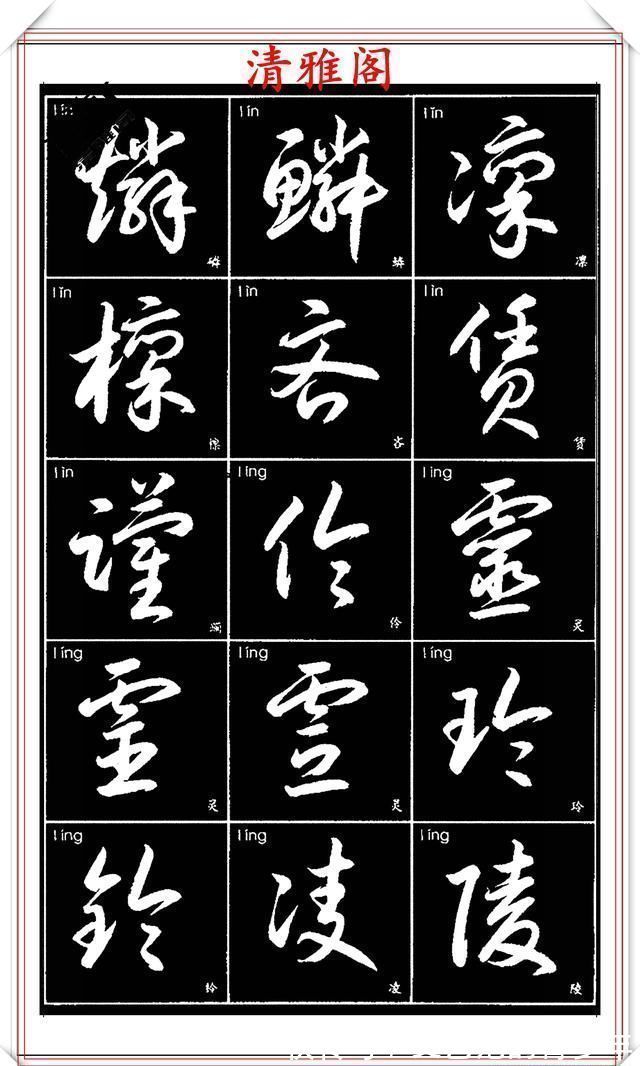 清雅阁
lín lín lǐn
燐 鱗 凜
鳞 凛
lǐn lìn lìn
檁 吝 賃
檩 吝 赁
lìn líng líng
伶 靈
伶 灵
líng líng líng
玲
灵 灵 玲
líng líng líng
鈴 凌 陵
铃 凌 陵